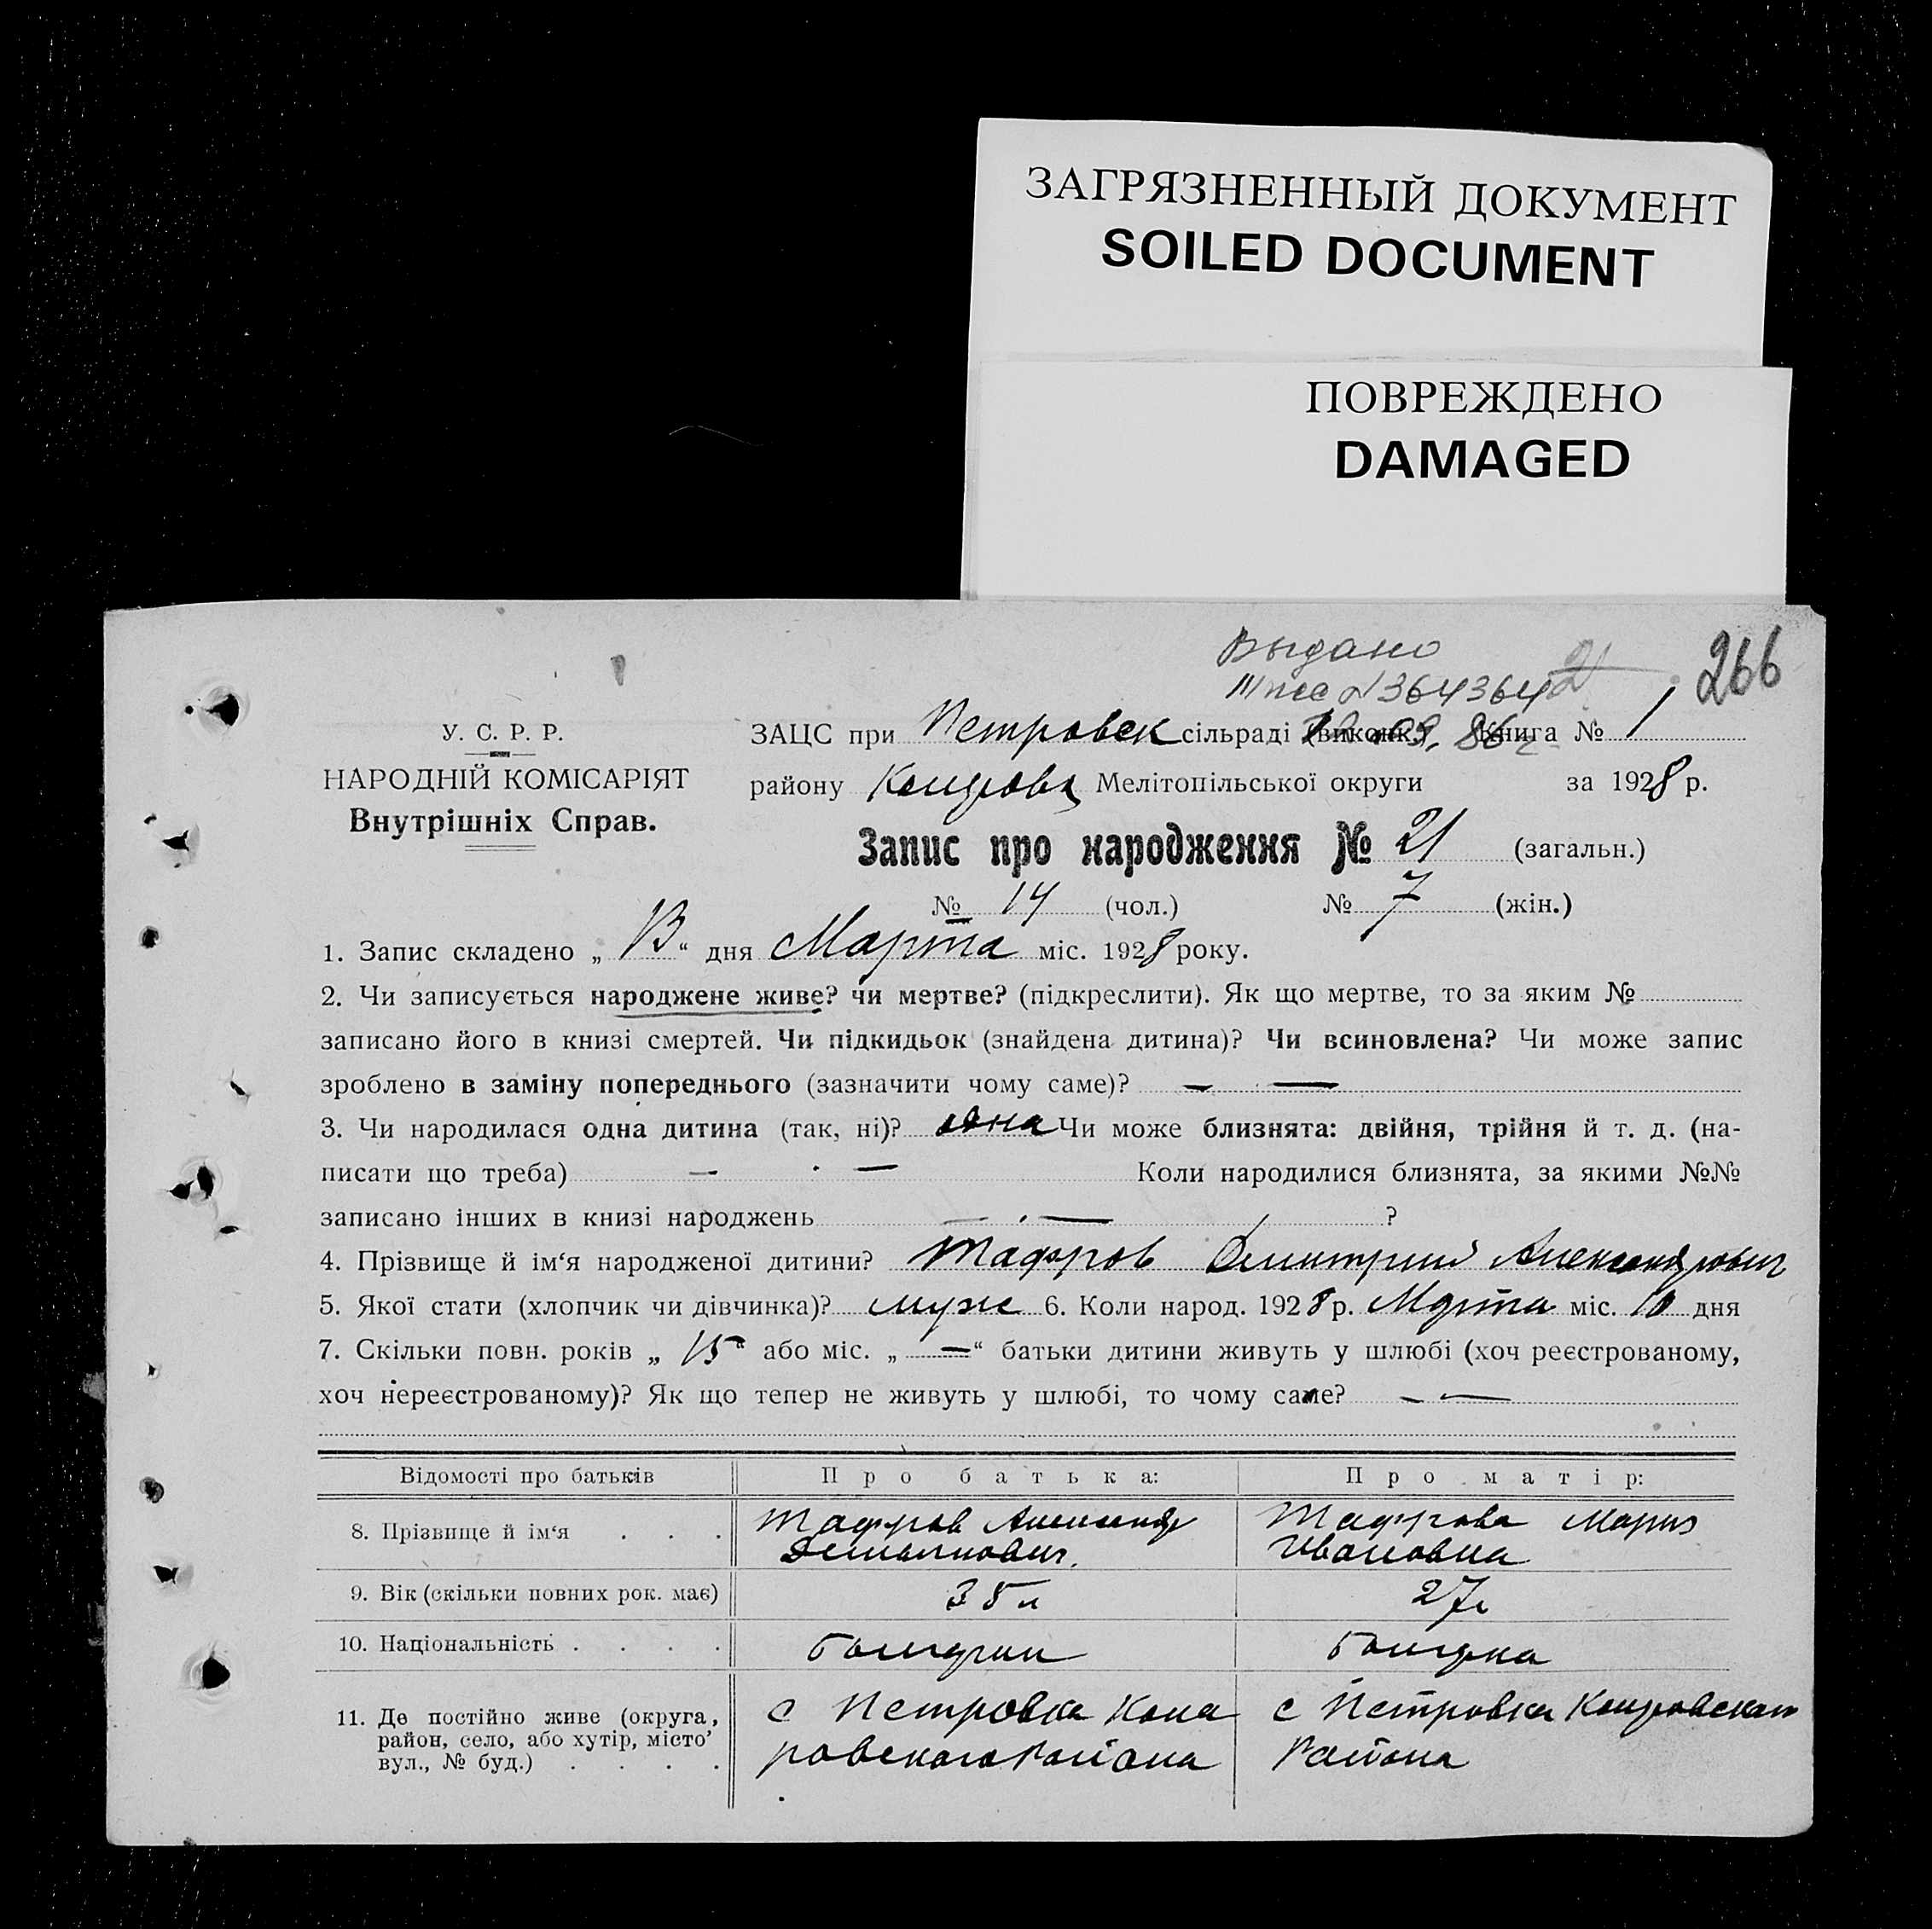 ЗАГРЯЗНЕННЫЙ ДОКУМЕНТ
SOILED DOCUMENT
ПОВРЕЖДЕНО
DAMAGED
Выдано
266
364364
У. С. Р. Р.
НАРОДНІЙ КОМІСАРІЯТ
Внутрішніх Справ.
ЗАЦС при Петровск сільраді (виконк.) Книга № 1
району Мелітопільської округи за 1928 р.
Запис про народження № 21 (загальн.)
№ 14 (чол.) № 7 (жін.)
1. Запис складено „ “ дня Марта міс. 1928 року.
2. Чи записується народжене живе? чи мертве? (підкреслити). Як що мертве, то за яким №
записано його в книзі смертей. Чи підкидьок (знайдена дитина)? Чи всиновлена? Чи може запис
зроблено в заміну попереднього (зазначити чому саме)? — —
3. Чи народилася одна дитина (так, ні)? одна Чи може близнята: двійня, трійня й т. д. (на-
писати що треба) — — Коли народилися близнята, за якими №№
записано інших в книзі народжень — — ?
4. Прізвище й ім‘я народженої дитини? Тафров Дмитрий Александрович
5. Якої стати (хлопчик чи дівчинка)? муж 6. Коли народ. 1928 р. Марта міс. 10 дня
7. Скільки повн. років „ 15 “ або міс. „ — “ батьки дитини живуть у шлюбі (хоч реєстрованому,
хоч нереєстрованому)? Як що тепер не живуть у шлюбі, то чому саме? — —
Відомості про батьків Про батька: Про матір:
8. Прізвище й ім‘я . . . Тафров Александр Тафрова Мария
Демьянович. Ивановна
9. Вік (скільки повних рок. має) 35 л 27 л
10. Національність . . . . болгарин болгарка
11. Де постійно живе (округа, район, село, або хутір, місто, вул., № буд.) . . . . с Петровка с Петровка
района Района